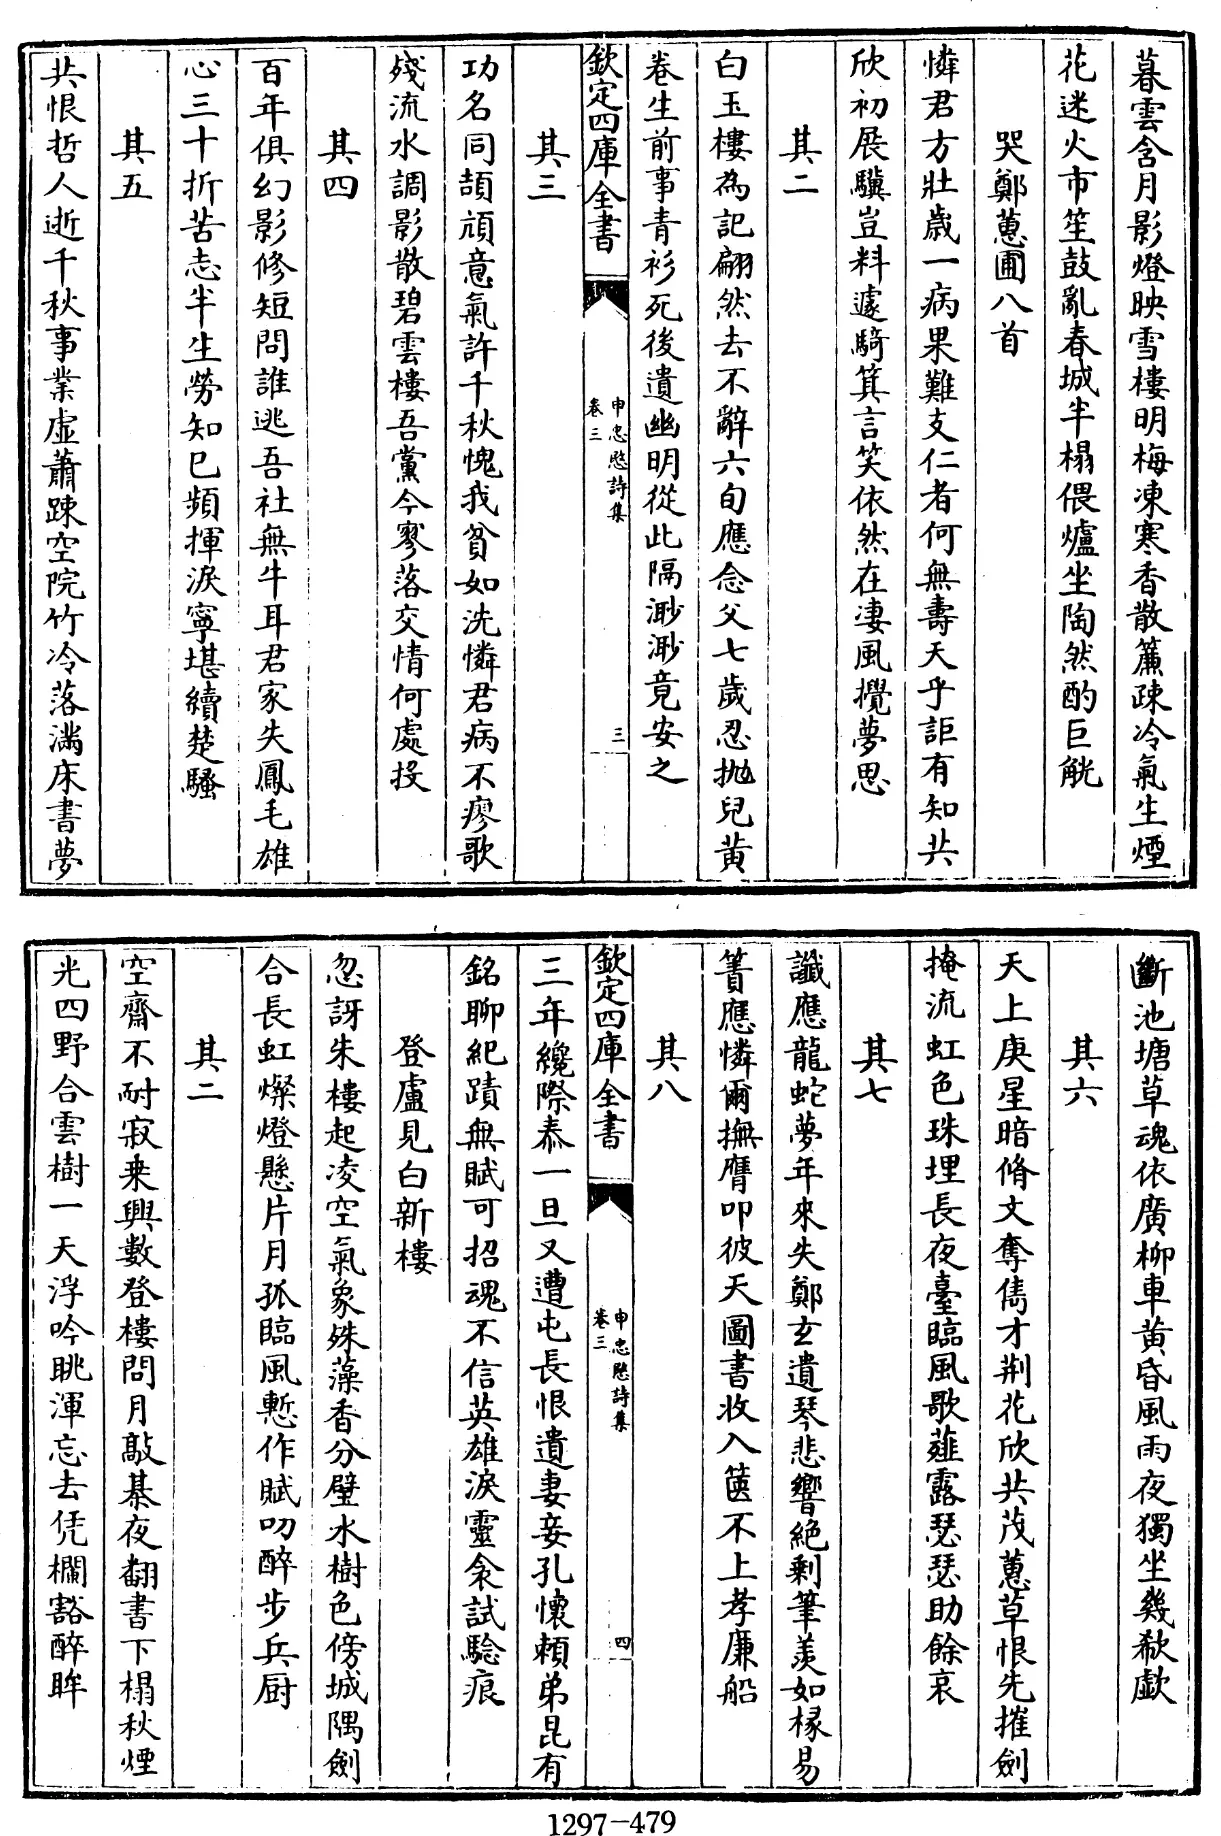 暮雲含月影燈映雪樓明梅凍寒香散簾疎冷氣生煙
花迷火市笙鼓亂春城半榻偎爐坐陶然酌巨觥
哭鄭蕙圃八首
憐君方壯歲一病果難支仁者何無壽天乎詎有知共
欣初展驥豈料遽騎箕言笑依然在凄風攪夢思
其二
白玉樓為記翩然去不辭六旬應念父七歲忍抛兒黄
卷生前事青衫死後遺幽明從此隔渺渺竟安之
欽定四庫全書
申忠愍詩集
卷三
三
其三
功名同頡頏意氣許千秋愧我貧如洗憐君病不瘳歌
殘流水調影散碧雲樓吾黨今寥落交情何處投
其四
百年俱幻影修短問誰逃吾社無牛耳君家失鳳毛雄
心三十折苦志半生勞知已頻揮淚寧堪續楚騷
其五
共恨哲人逝千秋事業虛蕭踈空院竹冷落滿床書夢
斷池塘草魂依廣柳車黄昏風雨夜獨坐幾欷歔
其六
天上庚星暗脩文奪雋才荆花欣共茂蕙草恨先摧劍
掩流虹色珠埋長夜臺臨風歌薤露瑟瑟助餘哀
其七
讖應龍蛇夢年來失鄭玄遺琴悲響絶剩筆羨如椽易
簀應憐爾撫膺叩彼天圖書收入篋不上孝廉船
其八
欽定四庫全書
申忠愍詩集
卷三
四
三年纔際泰一旦又遭屯長恨遺妻妾孔懷賴弟昆有
銘聊紀蹟無賦可招魂不信英雄淚靈衾試驗痕
登盧見白新樓
忽訝朱樓起凌空氣象殊藻香分璧水樹色傍城隅劍
合長虹燦燈懸片月孤臨風慙作賦叨醉步兵厨
其二
空齋不耐寂乗興數登樓問月敲棊夜翻書下榻秋煙
光四野合雲樹一天浮吟眺渾忘去凭欄豁醉眸
1297-479